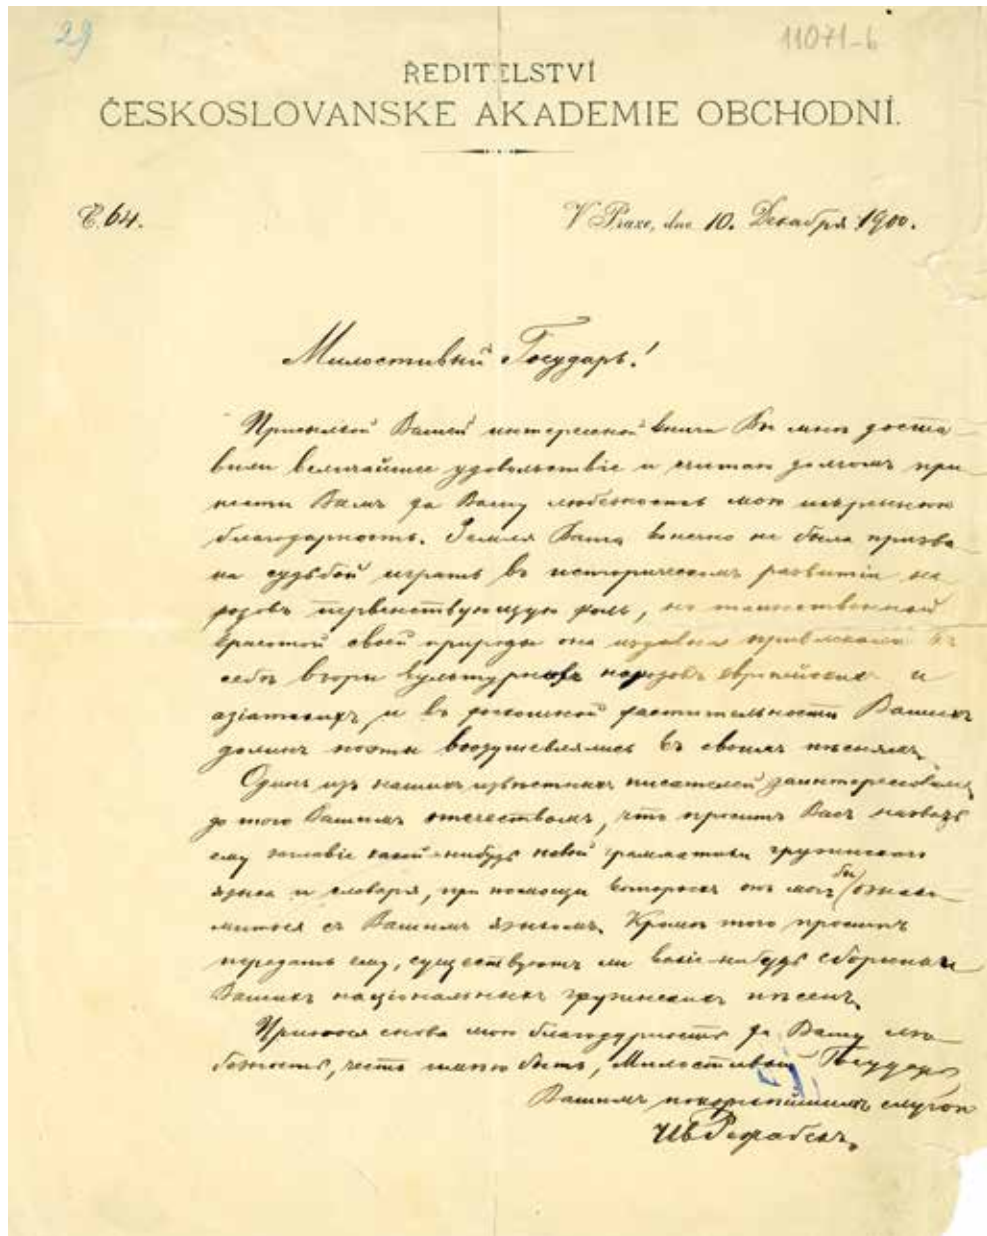 29
11071-b
ŘEDITELSTVÍ
ČESKOSLOVANSKE AKADEMIE OBCHODNÍ.
Č. 64.
V Praze, dne 10. Декабря 1900.
Милостивый Государь!
Присылкой Вашей интересной книги Вы мне доста-
вили величайшее удовольствіе и считаю долгомъ при-
нести Вамъ за Вашу любезность мою искреннюю
благодарность. Земля Ваша конечно не была призва-
на судьбой играть въ историческомъ развитіи на-
родовъ первенствующую роль, но таинственной
красотой своей природы она издавна привлекала къ
себѣ взоры культурныхъ народовъ европейскихъ и
азіатскихъ, и въ роскошной растительности Вашихъ
долинъ поэты воодушевлялись къ своимъ пѣснямъ.
Одинъ изъ нашихъ извѣстныхъ писателей заинтересовался
до того Вашимъ отечествомъ, что проситъ Васъ назвать
ему заглавіе какой-нибудь новой грамматики грузинского
языка и словаря, при помощи которыхъ онъ могъ бы ознако-
миться съ Вашимъ языкомъ. Кромѣ того проситъ
передать ему, существуютъ ли какіе-нибудь сборники
Вашихъ національныхъ грузинскихъ пѣсенъ.
снова мою благодарность за Вашу лю-
безность, честь имѣю быть, Милостивый Государь
Вашимъ покорнѣйшимъ слугой
Ив Ржабекъ.